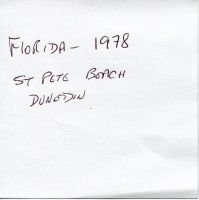 FLORIDA - 1978
ST PETE BEACH
DUNEDIN